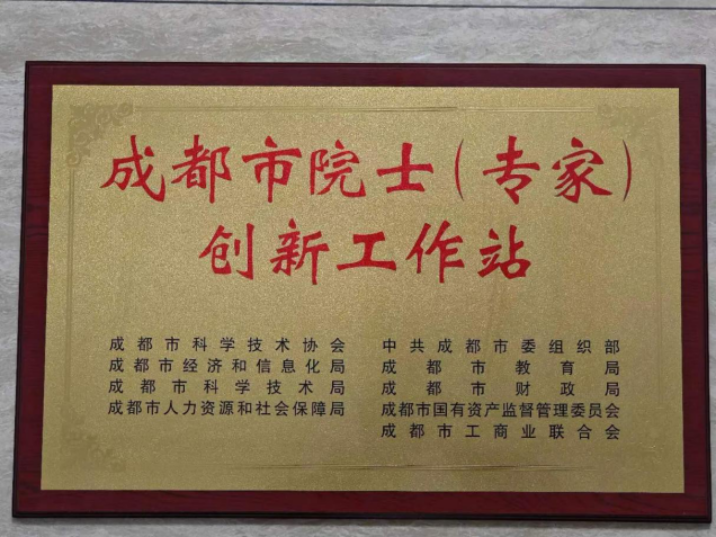 成都市院士(专家)
创新工作站
成都市科学技术协会
成都市经济和信息化局
成都市科学技术局
成都市人力资源和社会保障局
中共成都市委组织部
成都市教育局
成都市财政局
成都市国有资产监督管理委员会
成都市工商业联合会